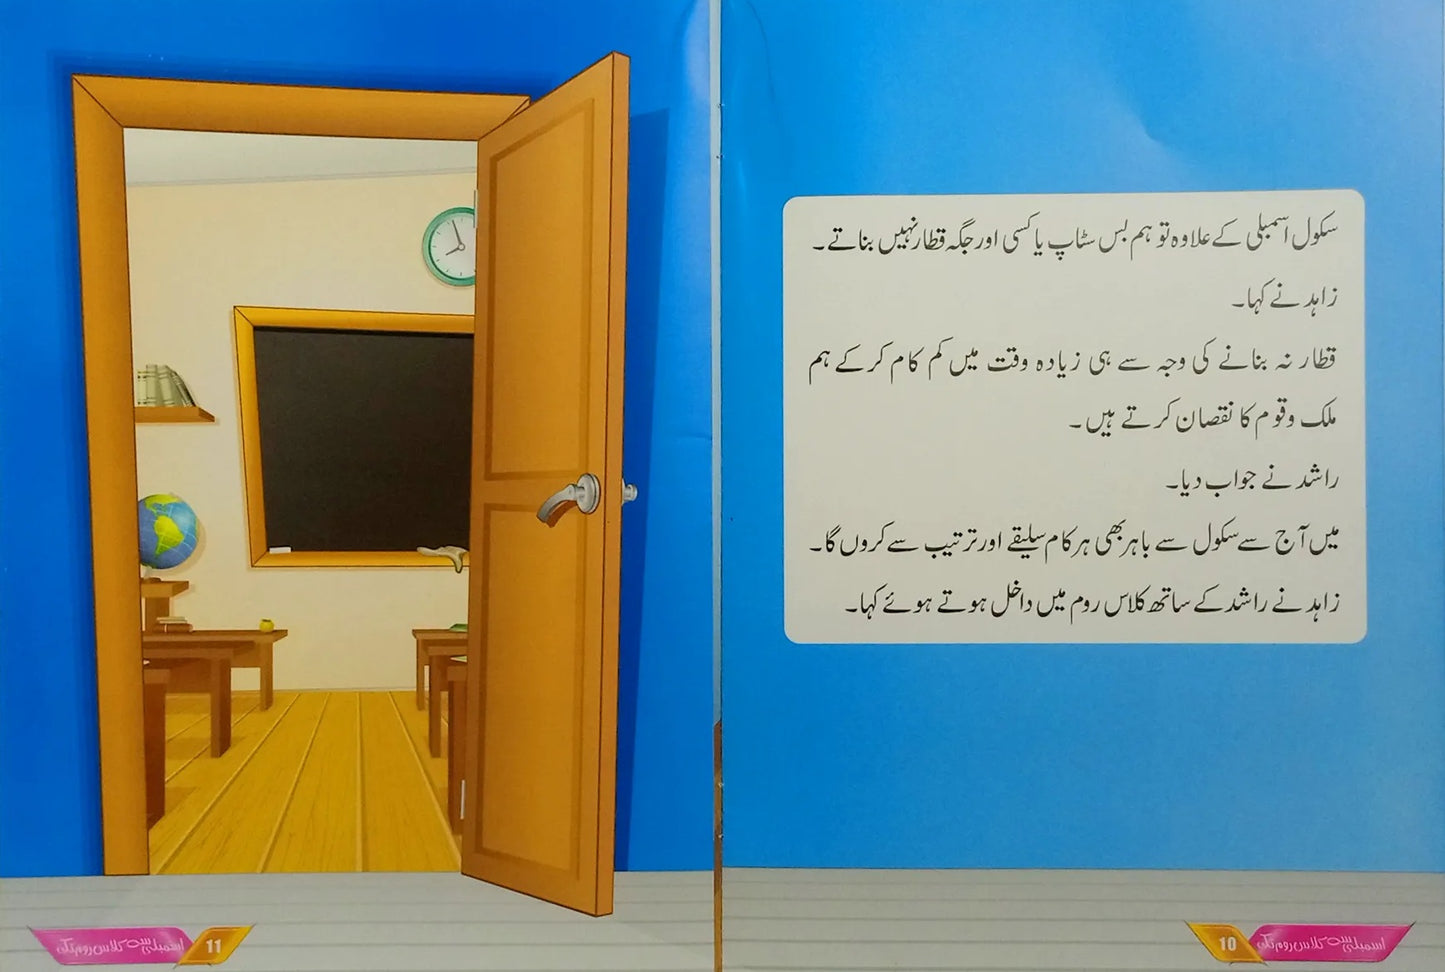 سکول اسمبلی کے علاوہ تو ہم بس سٹاپ یا کسی اور جگہ قطار نہیں بناتے۔
زاہد نے کہا۔
قطار نہ بنانے کی وجہ سے ہی زیادہ وقت میں کم کام کر کے ہم
ملک و قوم کا نقصان کرتے ہیں۔
راشد نے جواب دیا۔
میں آج سے سکول سے باہر بھی ہر کام سلیقے اور ترتیب سے کروں گا۔
زاہد نے راشد کے ساتھ کلاس روم میں داخل ہوتے ہوئے کہا۔
10 اسمبلی سے کلاس روم تک
11 اسمبلی سے کلاس روم تک